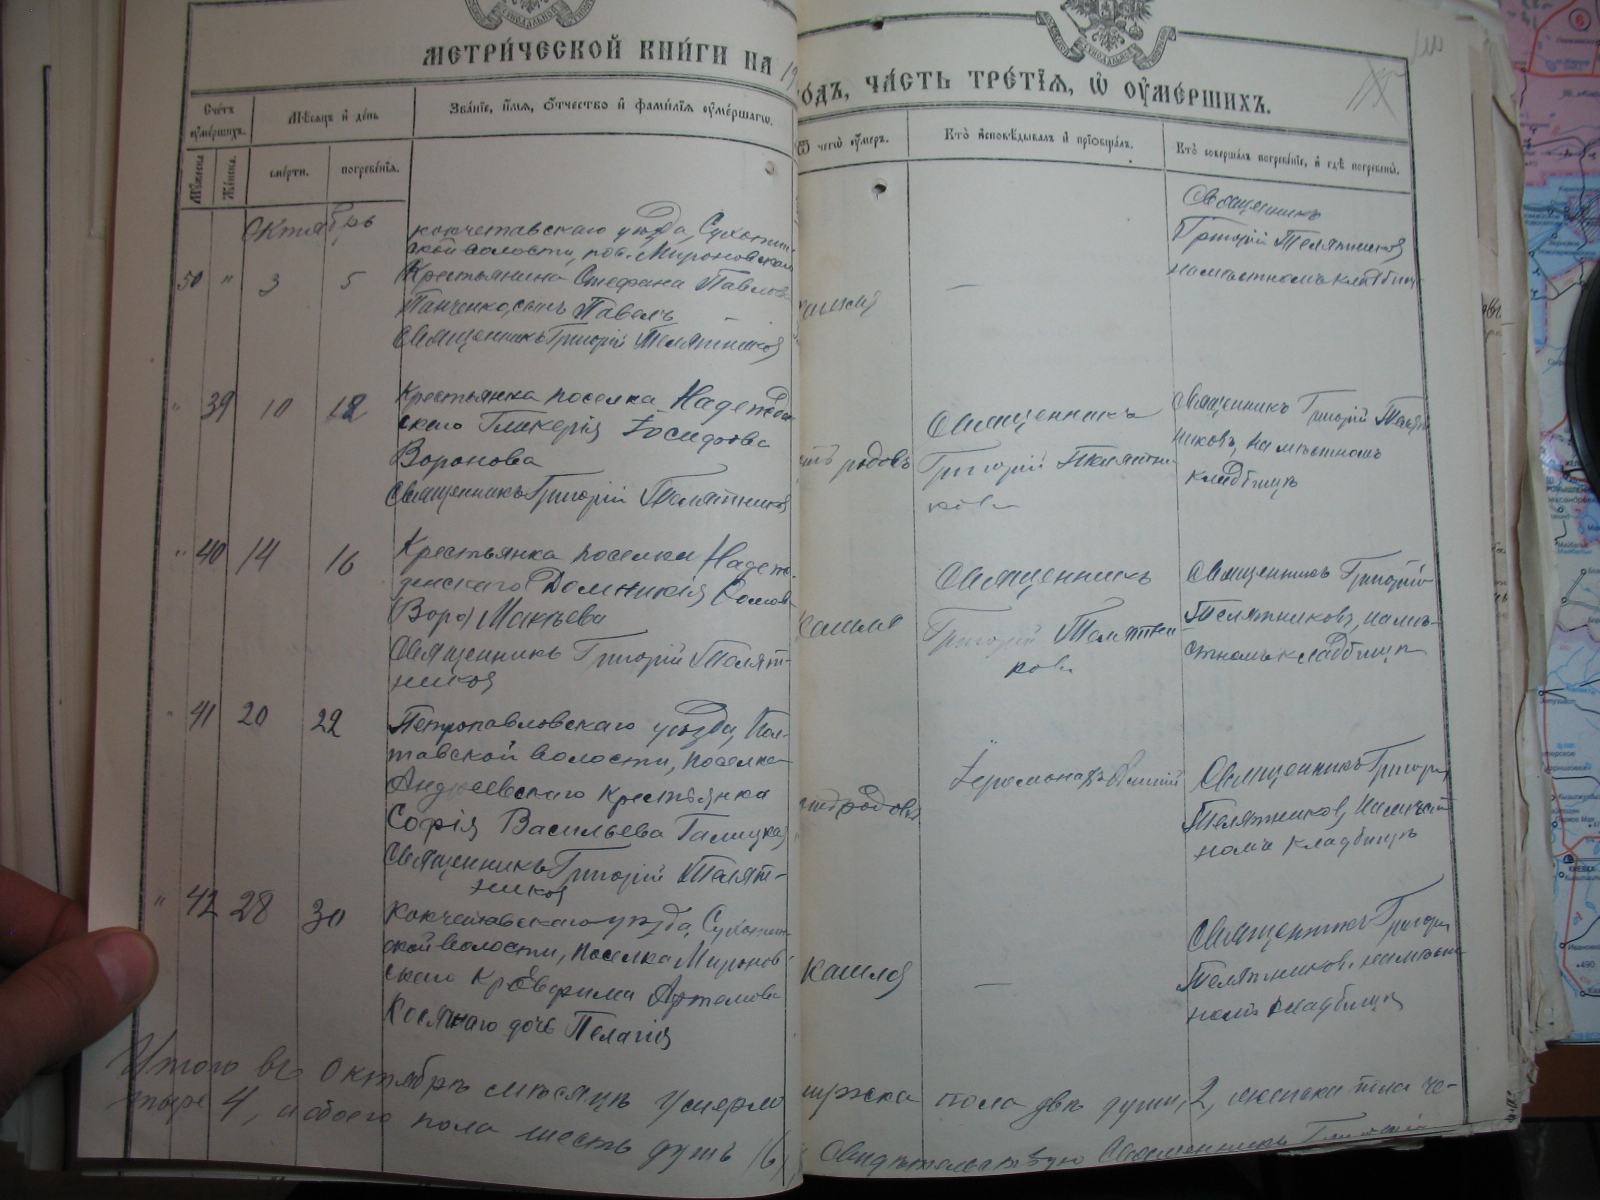 МЕТРИ́ЧЕСКОЙ КНИ́ГИ НА 19
ГОДЪ, ЧА́СТЬ ТРЕ́ТІѦ, Ѡ҆ ОУ҆МЕ́РШИХЪ.
Сче́тъ оу҆ме́ршихъ.
Му́жеска
Же́нска.
Мѣ́сѧцъ и҆ де́нь
сме́рти.
погребе́нїѧ.
Зва́нїе, и҆́мѧ, ѻ҆́тчество и҆ фами́лїѧ оу҆ме́ршагѡ.
Ѿ чегѡ̀ оу҆́меръ.
Кто̀ и҆сповѣ́дывалъ и҆ прїѡбща́лъ.
Кто̀ соверша́лъ погребе́нїе, и҆ гдѣ̀ погребены̀.
Октябрь
50 " 3 5
Кокчетавскаго уѣзда, Сухотин-
ской волости, пос. Мироновскаго
Крестьянина Стефана Павлова
Панченко, сынъ Павелъ
Священникъ Григорій Телятниковъ
—
Священникъ
Григорій Телятниковъ
на мѣстномъ кладбищѣ
" 39 10 12
Крестьянка поселка Надежден-
скаго Гликерія Іосидоова
Воронова
Священникъ Григорій Телятниковъ
родовъ
Священникъ
Григорій Телятни-
ковъ
Священникъ Григорій Телят-
никовъ, на мѣстномъ
кладбищѣ
" 40 14 16
Крестьянка поселка Надеж-
денскаго Домникія
Макѣева
Священникъ Григорій Телят-
никовъ
кашля
Священникъ
Григорій Телятни-
ковъ
Священникъ Григорій
Телятниковъ, на мѣ-
стномъ кладбищѣ
" 41 20 22
Петропавловскаго уѣзда, Пол-
тавской волости, поселка
Андреевскаго крестьянка
Софія Васильева Галицкая
Священникъ Григорій Телят-
никовъ
родовъ
Іеромонахъ
Священникъ Григорій
Телятниковъ, на мѣст-
номъ кладбищѣ
" 42 28 30
Кокчетавскаго уѣзда, Сухотин-
ской волости, поселка Миронов-
скаго кр. Ефрима Артемова
дочь Пелагія
кашля
—
Священникъ Григорій
Телятниковъ на мѣст-
номъ кладбищѣ
Итого въ Октябрѣ мѣсяцѣ умерло мужска пола двѣ души, 2, женска пола че-
тыре 4, а обоего пола шесть душъ (6) Свидѣтельствую Священникъ Григорій